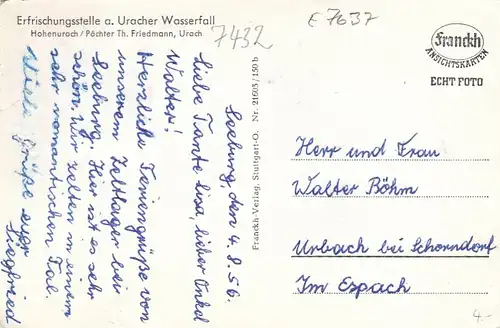 Erfrischungsstelle a. Uracher Wasserfall
Hohenurach / Pächter Th. Friedmann, Urach
7432
E 7637
Franckh
ANSICHTSKARTEN
ECHT FOTO
Seeburg, den 4.8.56.
Liebe Tante Lisa, lieber Onkel
Walter!
Herzliche Feriengrüße von
unserem Zeltlager bei
Seeburg. Hier ist es sehr
schön. Wir zelten in einem
sehr romantischen Tal.
Viele Grüße euer
Siegfried
Franckh-Verlag, Stuttgart-O. Nr. 21605/150 b
Herr und Frau
Walter Böhm
Urbach bei Schorndorf
Im Espach
4.-